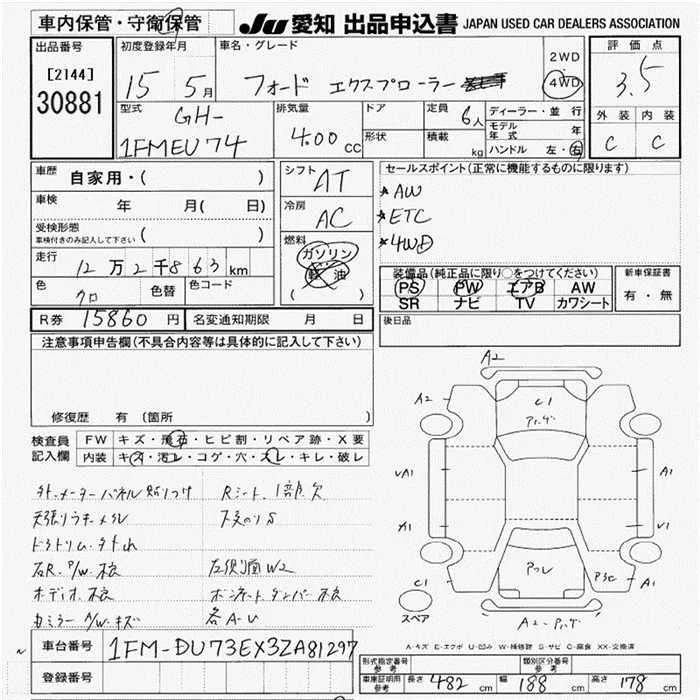 車内保管・守衛保管
JU 愛知 出品申込書 JAPAN USED CAR DEALERS ASSOCIATION
出品番号
[2144]
30881
初度登録年月
15 5月
車名・グレード
フォード エクスプローラー
2WD
4WD
評価点
3.5
外装 内装
C C
型式
GH-
1FMEU74
排気量
4.00 CC
ドア
形状
定員 6人
積載 kg
ディーラー・並行
モデル年式 年
ハンドル 左・右
車歴
自家用・( )
車検 年 月( 日)
受検形態
車検付きのみ記入して下さい ( )
走行
12万2千863 km
色 クロ
色替
色コード
シフト AT
冷房 AC
燃料
ガソリン
軽油
( )
セールスポイント(正常に機能するものに限ります)
*AW
*ETC
*4WD
装備品(純正品に限り○をつけてください)
PS PW エアB AW
SR ナビ TV カワシート
新車保証書
有・無
R券 15860円
名変通知期限 月 日
後日品
注意事項申告欄(不具合内容等は具体的に記入して下さい)
修復歴 有 (箇所 )
検査員記入欄
FW キズ・飛石・ヒビ割・リペア跡・X要
内装 キズ・汚レ・コゲ・穴・スレ・キレ・破レ
Rシート、1部欠
天張りウキ・メクレ
右R.P/W.不良
左側面W2
オーディオ.不良
ボンネットダンパー不良
右ミラー A/W.キズ
各A-U
A2
A2
C1
A1
A1
A1
C1
スペア
A-キズ E-エクボ U-凹み W-補修跡 S-サビ C-腐食 XX-交換済
車台番号 1FM-DU73EX3ZA81297
登録番号
形式指定番号
参考
類別区分番号
参考
車庫証明用
参考
長さ 482 cm 幅 188 cm 高さ 178 cm